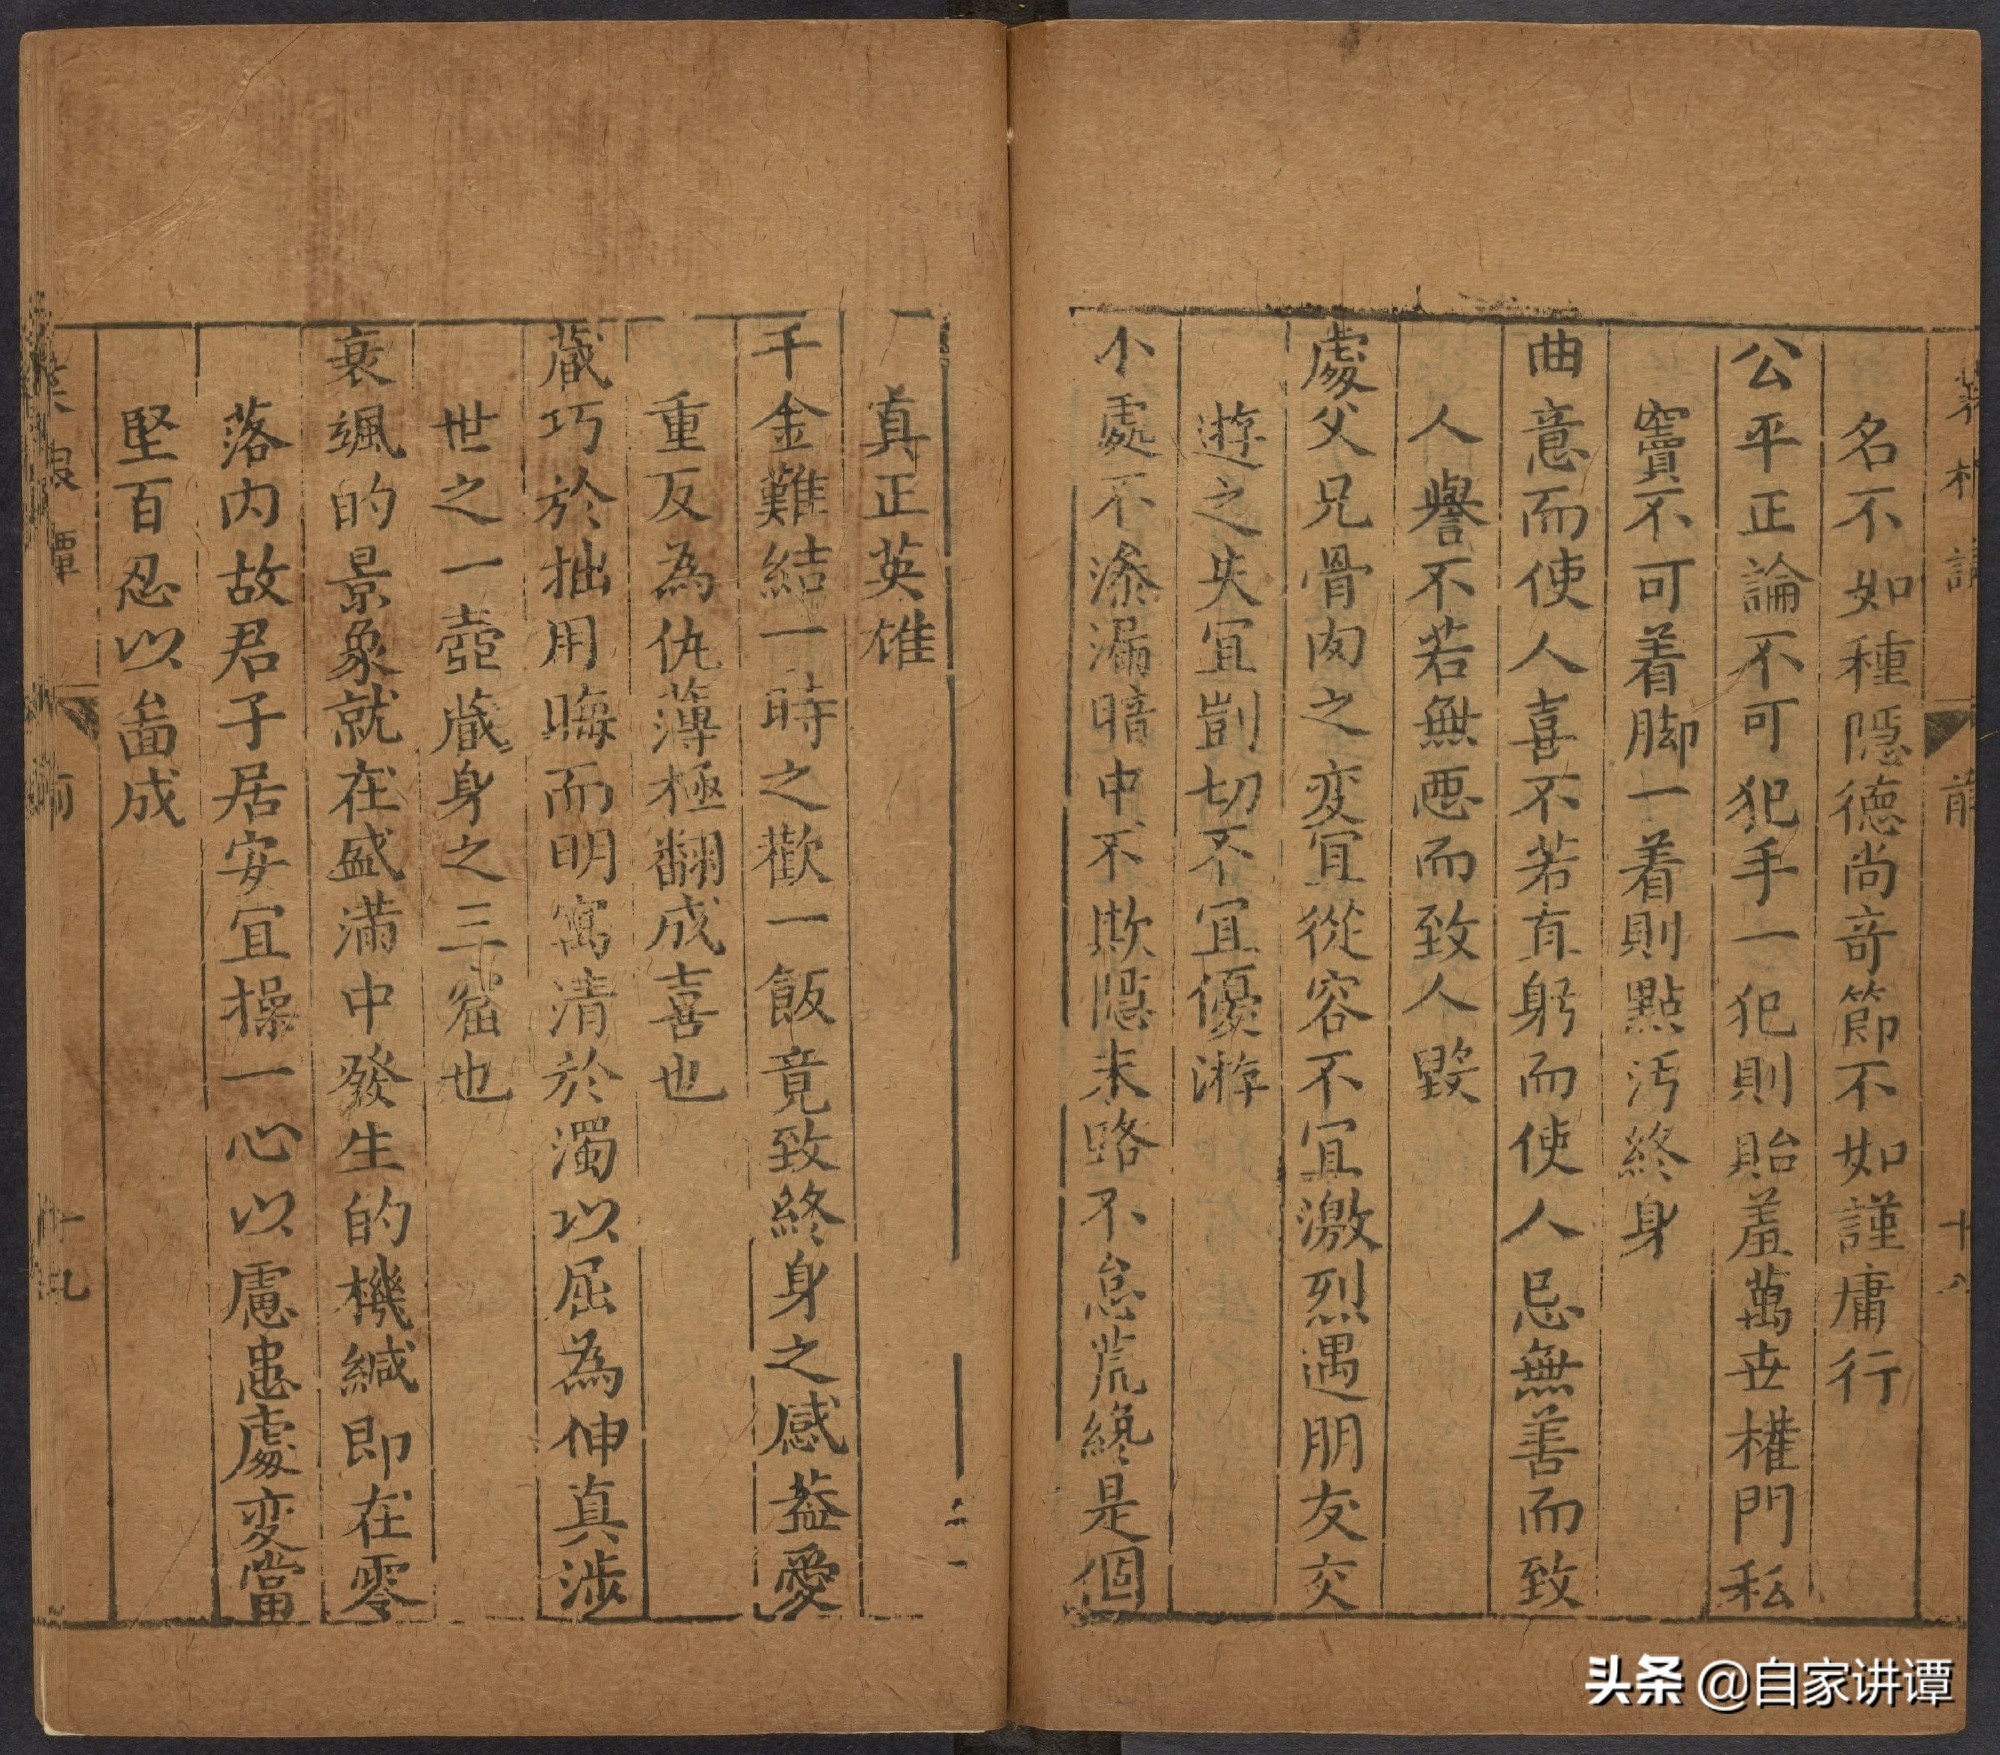 名不如種隠德尚竒節不如謹庸行
公平正論不可犯手一犯則貽羞萬世權門私
竇不可着脚一着則點汚終身
曲意而使人喜不若直躬而使人忌無善而致
人譽不若無惡而致人毀
處父兄骨肉之变宜從容不宜激烈遇朋友交
遊之失宜剴切不宜優游
小處不滲漏暗中不欺隠末路不怠荒纔是個
真正英雄
千金難結一時之歡一飯竟致終身之感葢愛
重反為仇薄極翻成喜也
藏巧於拙用晦而明寓清於濁以屈為伸真涉
世之一壺藏身之三窟也
衰颯的景象就在盛滿中發生的機緘即在零
落内故君子居安宜操一心以慮患處变當
堅百忍以啚成
前
十八
头条 @自家讲谭